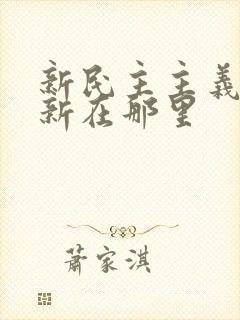 新民主主義
新在那里
蕭家淇